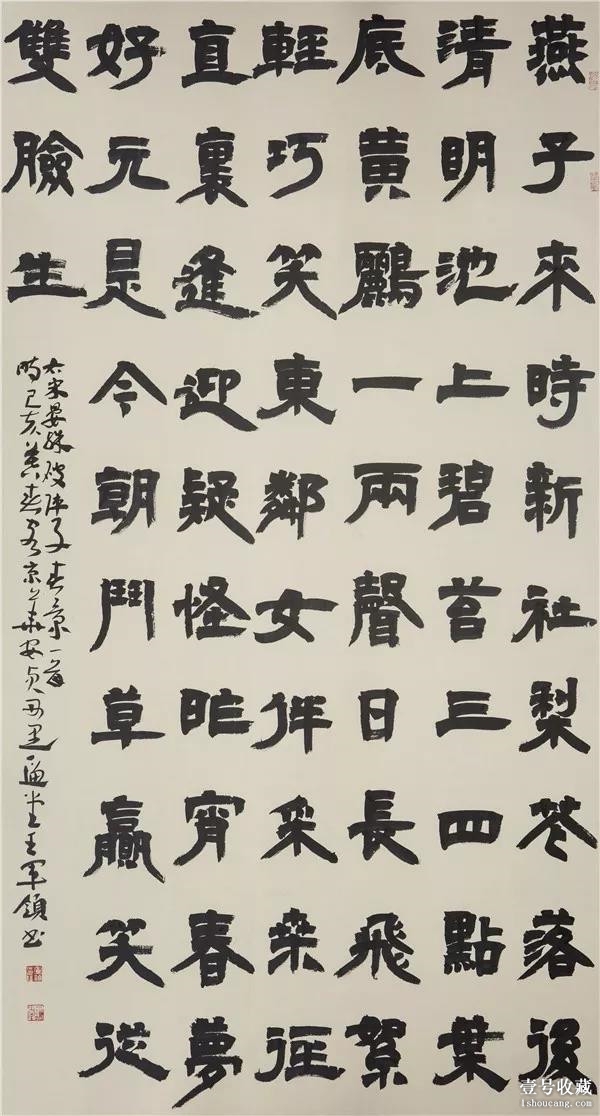 燕子來時新社梨花落後
清明池上碧苔三四點葉
底黃鸝一兩聲日長飛絮
輕巧笑東鄰女伴采桒徑
直裏逢迎疑怪昨宵春夢
好元是今朝鬥草贏笑從
雙臉生
右宋晏殊破陣子春景一首
時己亥暮春京華安貞里堂王軍領書
壹号收藏
1shoucang.com